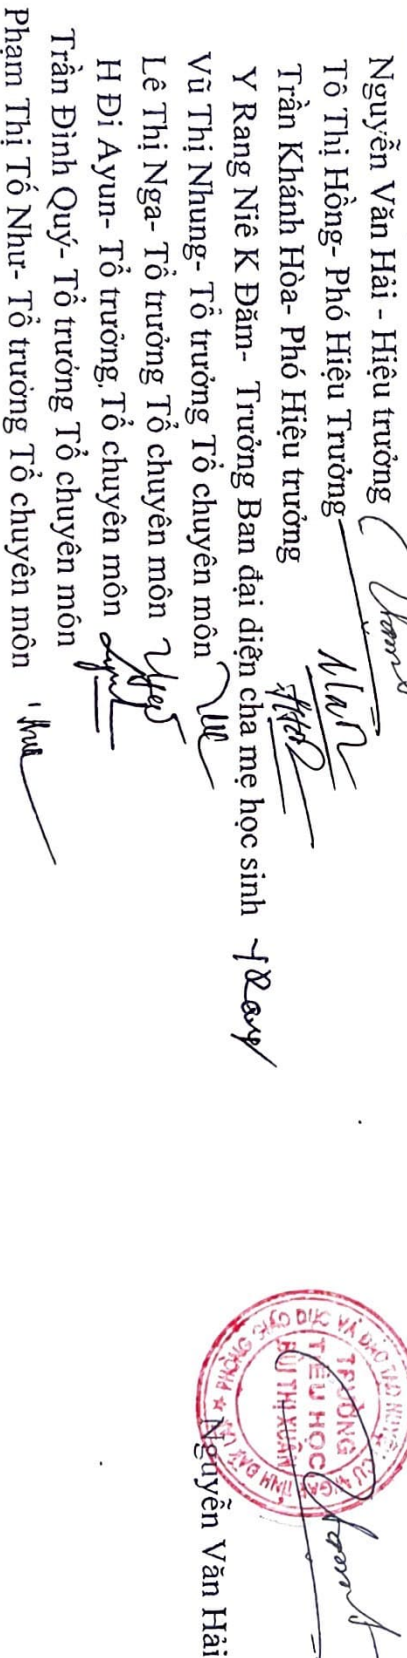 Nguyễn Văn Hải - Hiệu trưởng
Tô Thị Hồng- Phó Hiệu Trưởng
Trần Khánh Hòa- Phó Hiệu trưởng
Y Rang Niê K Đăm- Trưởng Ban đại diện cha mẹ học sinh
Vũ Thị Nhung- Tổ trưởng Tổ chuyên môn
Lê Thị Nga- Tổ trưởng Tổ chuyên môn
H Đi Ayun- Tổ trưởng, Tổ chuyên môn
Trần Đình Quý- Tổ trưởng Tổ chuyên môn
Phạm Thị Tố Như- Tổ trưởng Tổ chuyên môn
TRƯỜNG
TIỂU HỌC
BÙI THỊ XUÂN
Nguyễn Văn Hải